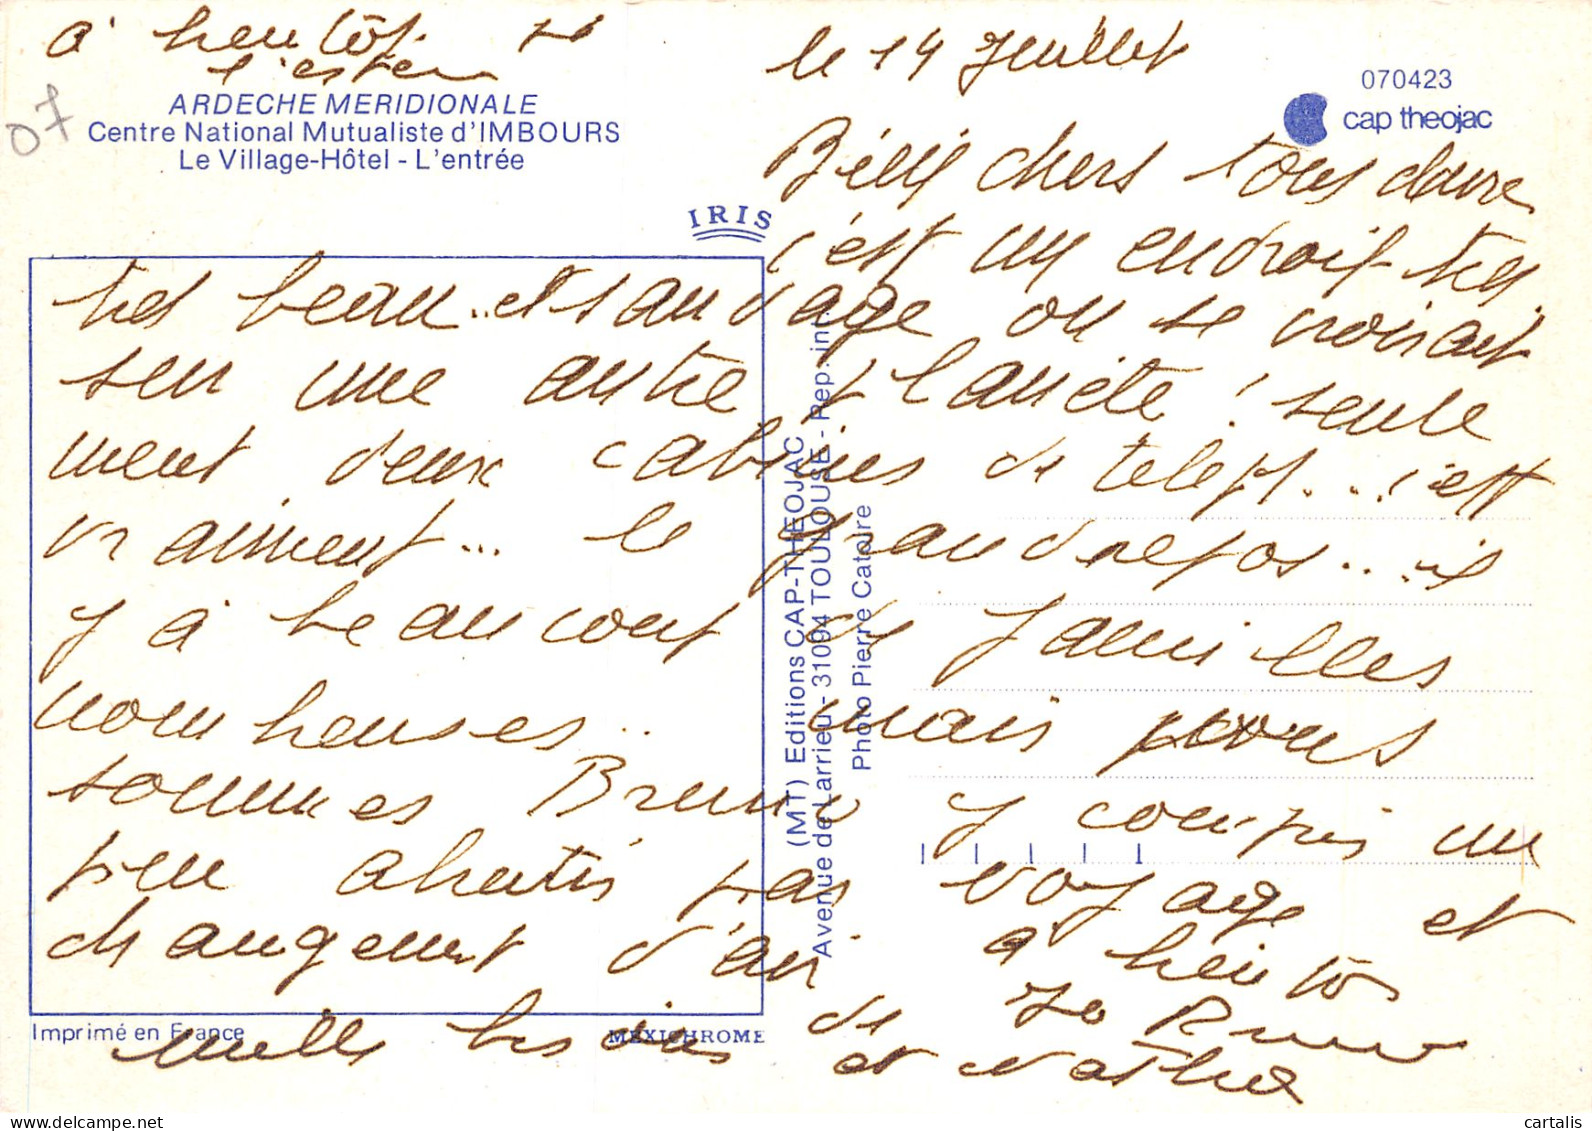 à bientôt je
l'espère
07
ARDECHE MERIDIONALE
Centre National Mutualiste d'IMBOURS
Le Village-Hôtel - L'entrée
IRIS
070423
cap theojac
le 14 Juillet
chers tous deux
c'est un endroit très
très beau.. et sauvage on se croirait
sur une autre planète ! seule
ment deux cabines de teleph... c'est
vraiment... le grand repos... il
y a beaucoup de familles
nombreuses... mais nous
sommes Bruno y compris un
peu abrutis par voyage et
changement d'air à bientôt
mille bisous de Jo Bruno
et Nathie
(MT) Editions CAP-THEOJAC
Avenue de Larrieu - 31094 TOULOUSE - Rep. int.
Photo Pierre Catoire
Imprimé en France
MEXICHROME
cartalis